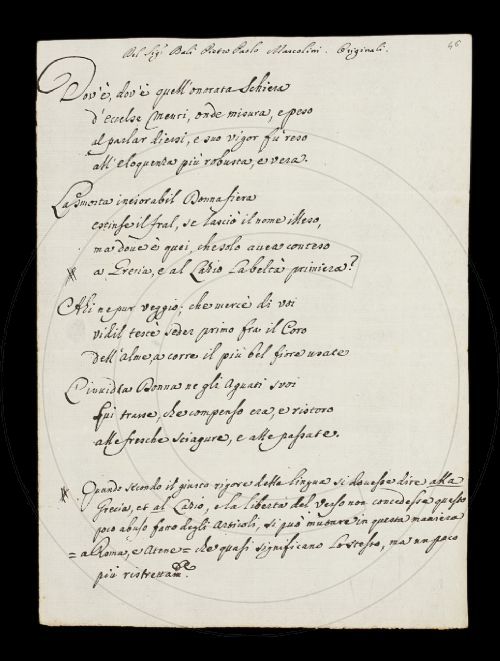 Del Sig.r Balì Pietro Paolo Marcolini. Originali.
46
Dov'è, dov'è quell'onorata Schiera
d'eccelse Menti, onde misura, e peso
al parlar diessi, e suo vigor fù reso
all'Eloquenza più robusta, e vera.
La smorta inesorabil Donna fiera
estinse il fral, se lasciò il nome illeso,
ma dove è quei, che solo avea conteso
a Grecia, e al Lazio la beltà primiera?
Ahi ne pur veggio; che mercè di voi
vidil testè seder primo fra il Coro
dell'Alme, a corre il più bel fiore usate
L'invidia Donna ne gli Aguati suoi
quì trasse, che compenso era, e ristoro
alle fresche sciagure, e alle passate.
Quando secondo il giusto rigore della lingua si dovesse dire alla
Grecia, et al Lazio, e la libertà del verso non concedesse questo
poco abuso fatto degli Articoli, si può mutare in questa maniera
= a Roma, e Atene = che quasi significano lo stesso, ma un poco
più ristrettam.e